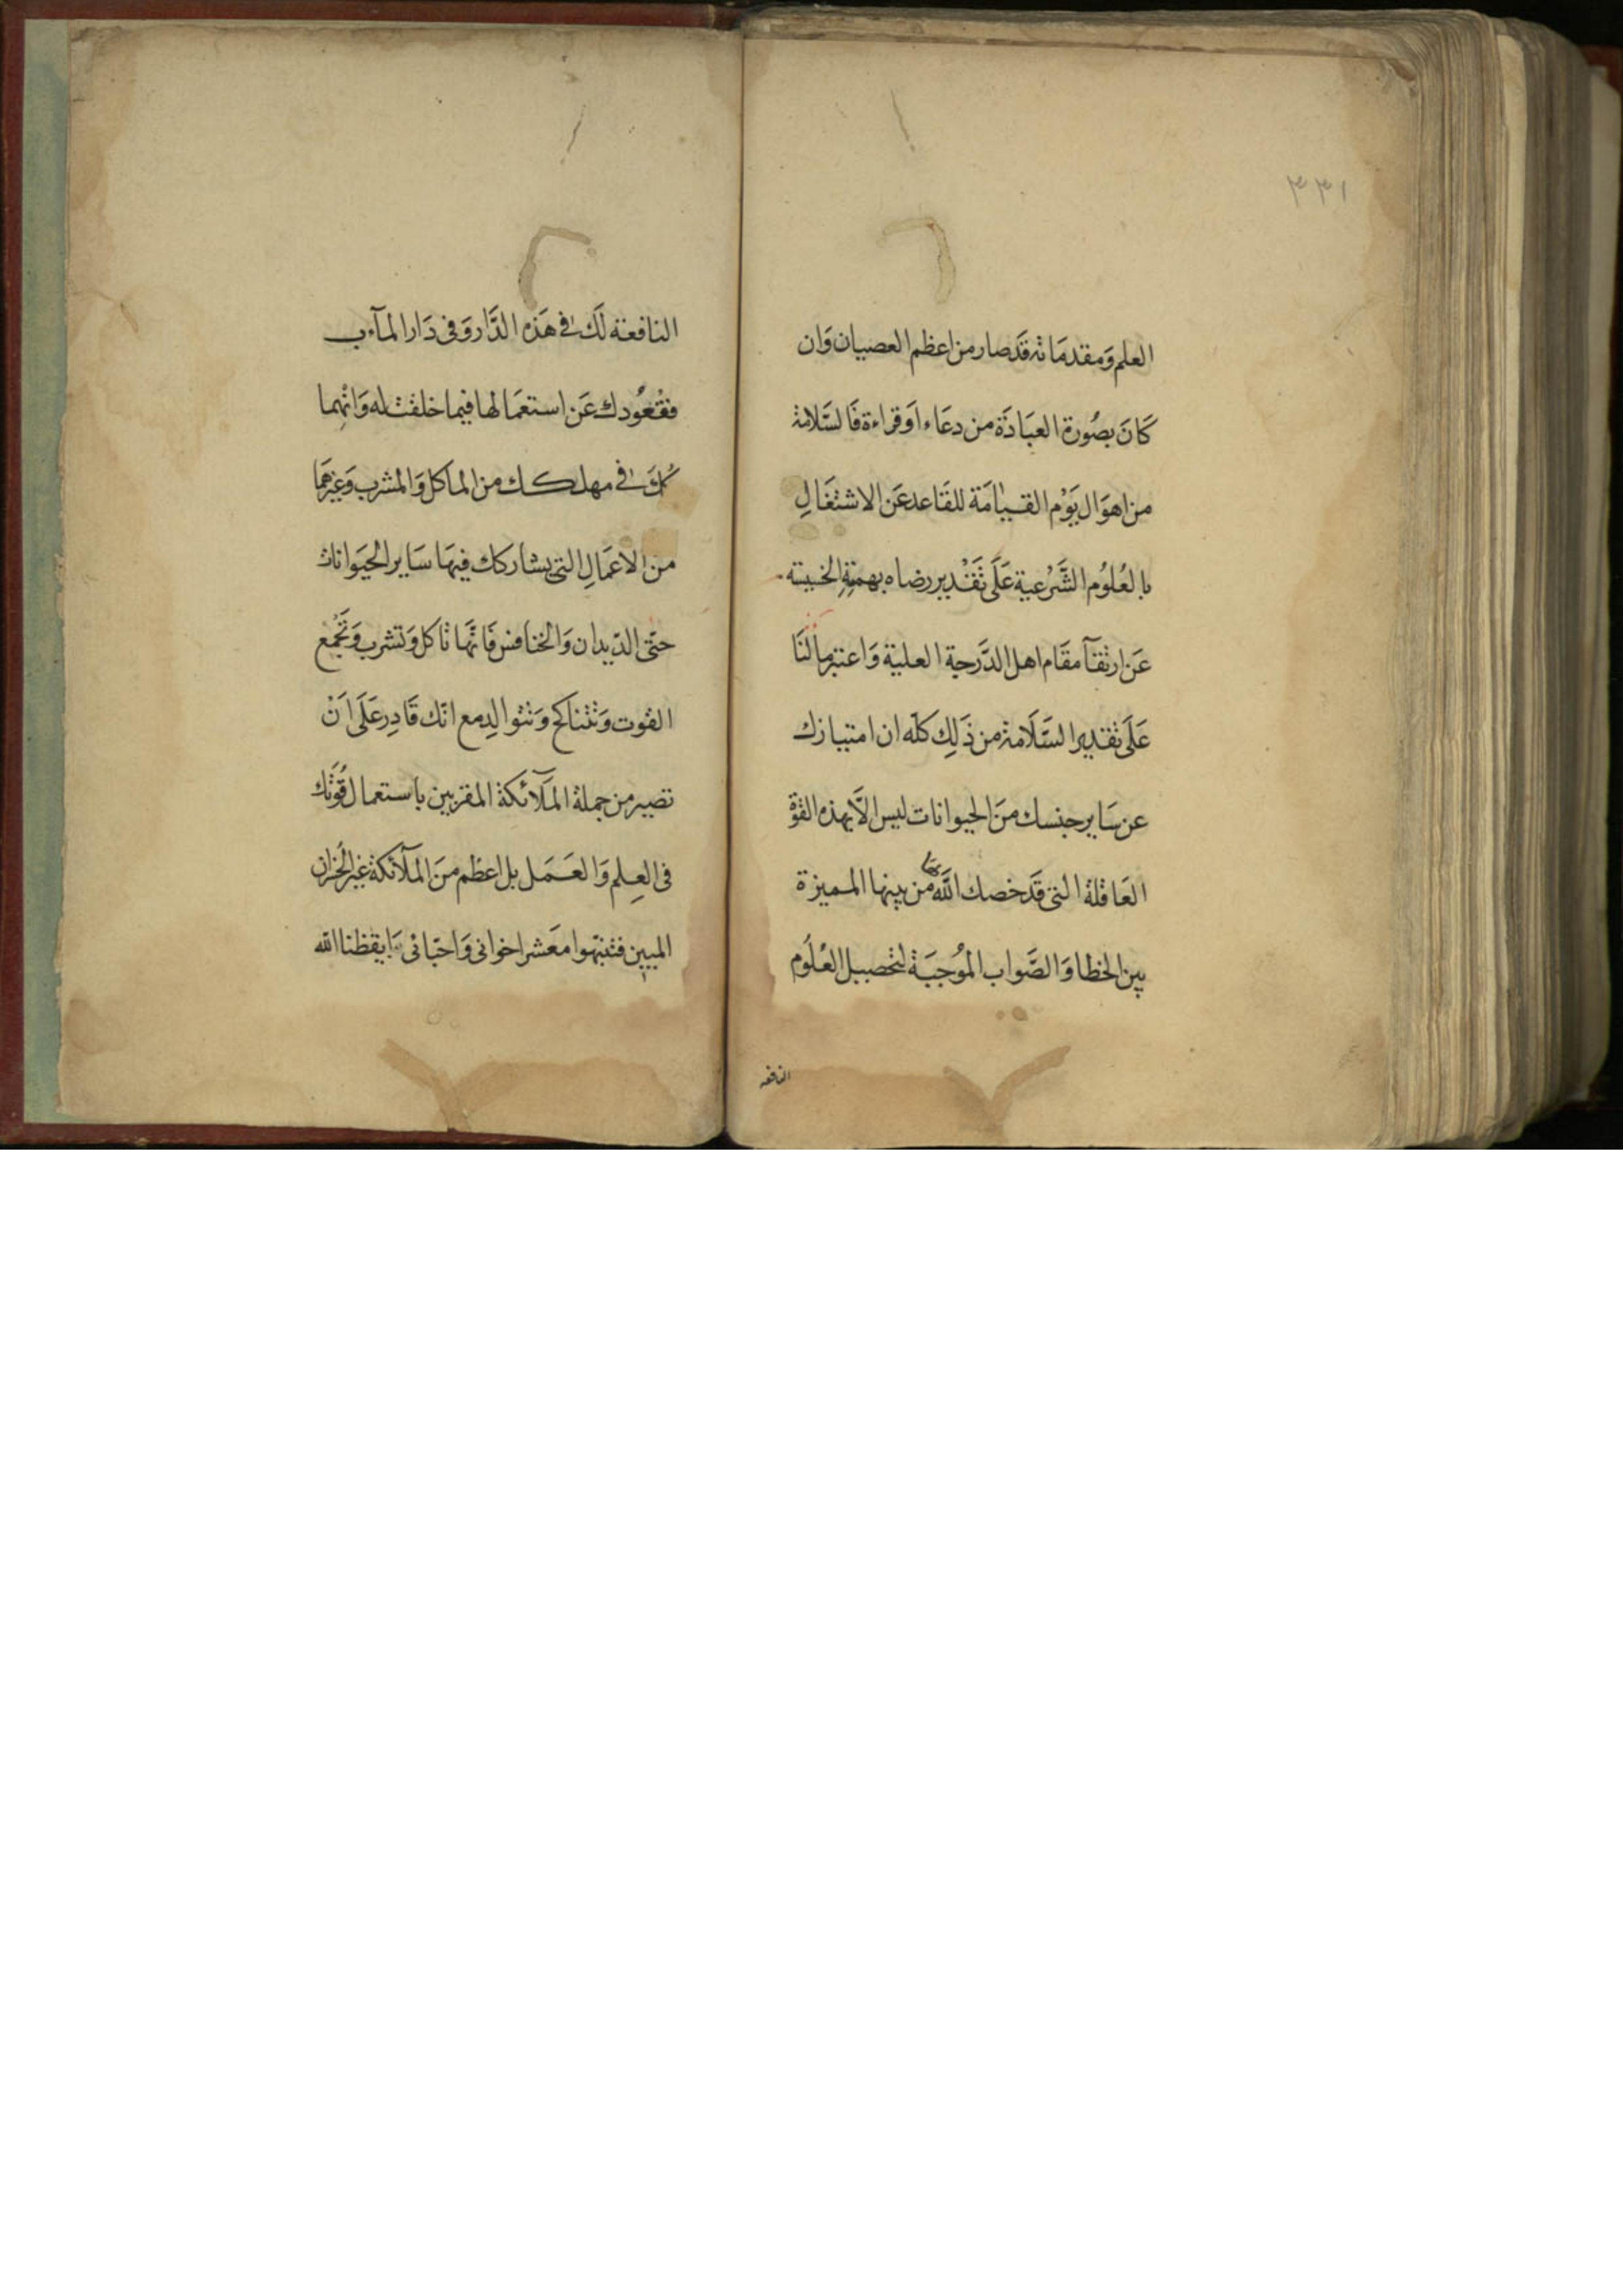 ٣٣١
العلم وَمقدمَاته قَدصار من اعظم العصيان وَان
كَانَ بصُورة العبَادَة من دعَاء اَو قراءة فَالسَّلامة
من اهوَال يَوْم القيامَة للقَاعد عَن الاشتغَالِ
بالعُلوُم الشَّرْعية عَلَى تَقْديررضاه بهمتِهِ الخسيسته
عَن ارتقآ مقَام اهل الدَّرجة العلية وَاعتبر مالَنَا
عَلَى تقدير السَّلَامة من ذَلِك كلّه ان امتيازك
عن سَاير جنسك منَ الحيوانات ليس الَّا بهذه القوّة
العَاقلة التى قَد خصك اللّه بهَا من بينها المميزة
بين الخطا وَالصَّواب الموُجبَة لتحصيل العُلُوم
النافعه
النافعة لَك فى هَذه الدَّار وَفى دَار المآءب
فقعُودك عَن استعمَالها فيما خلقت له وَانهِما
كُكَ فى مهلكك من الماكل وَالمشرب وَغيرهَما
من الاعمَالِ التى يشاركك فيهَا سَاير الحيَوانات
حتّى الديدان وَالخنافس فَانّهَا تاكل وَتشرب وَتَجْمع
القوت وَتتناكح وَتتوالد مع انّك قَادِر عَلَى اَنْ
تصير من جملة المَلآئكة المقربين باستعمال قُوّتك
فى العِلم وَالعَمَل بل اعظم منَ المَلآئكة غير الخزان
المبين فتنبّهوا معَشر اخوانى وَاحبّائى ايقظنا اللّه